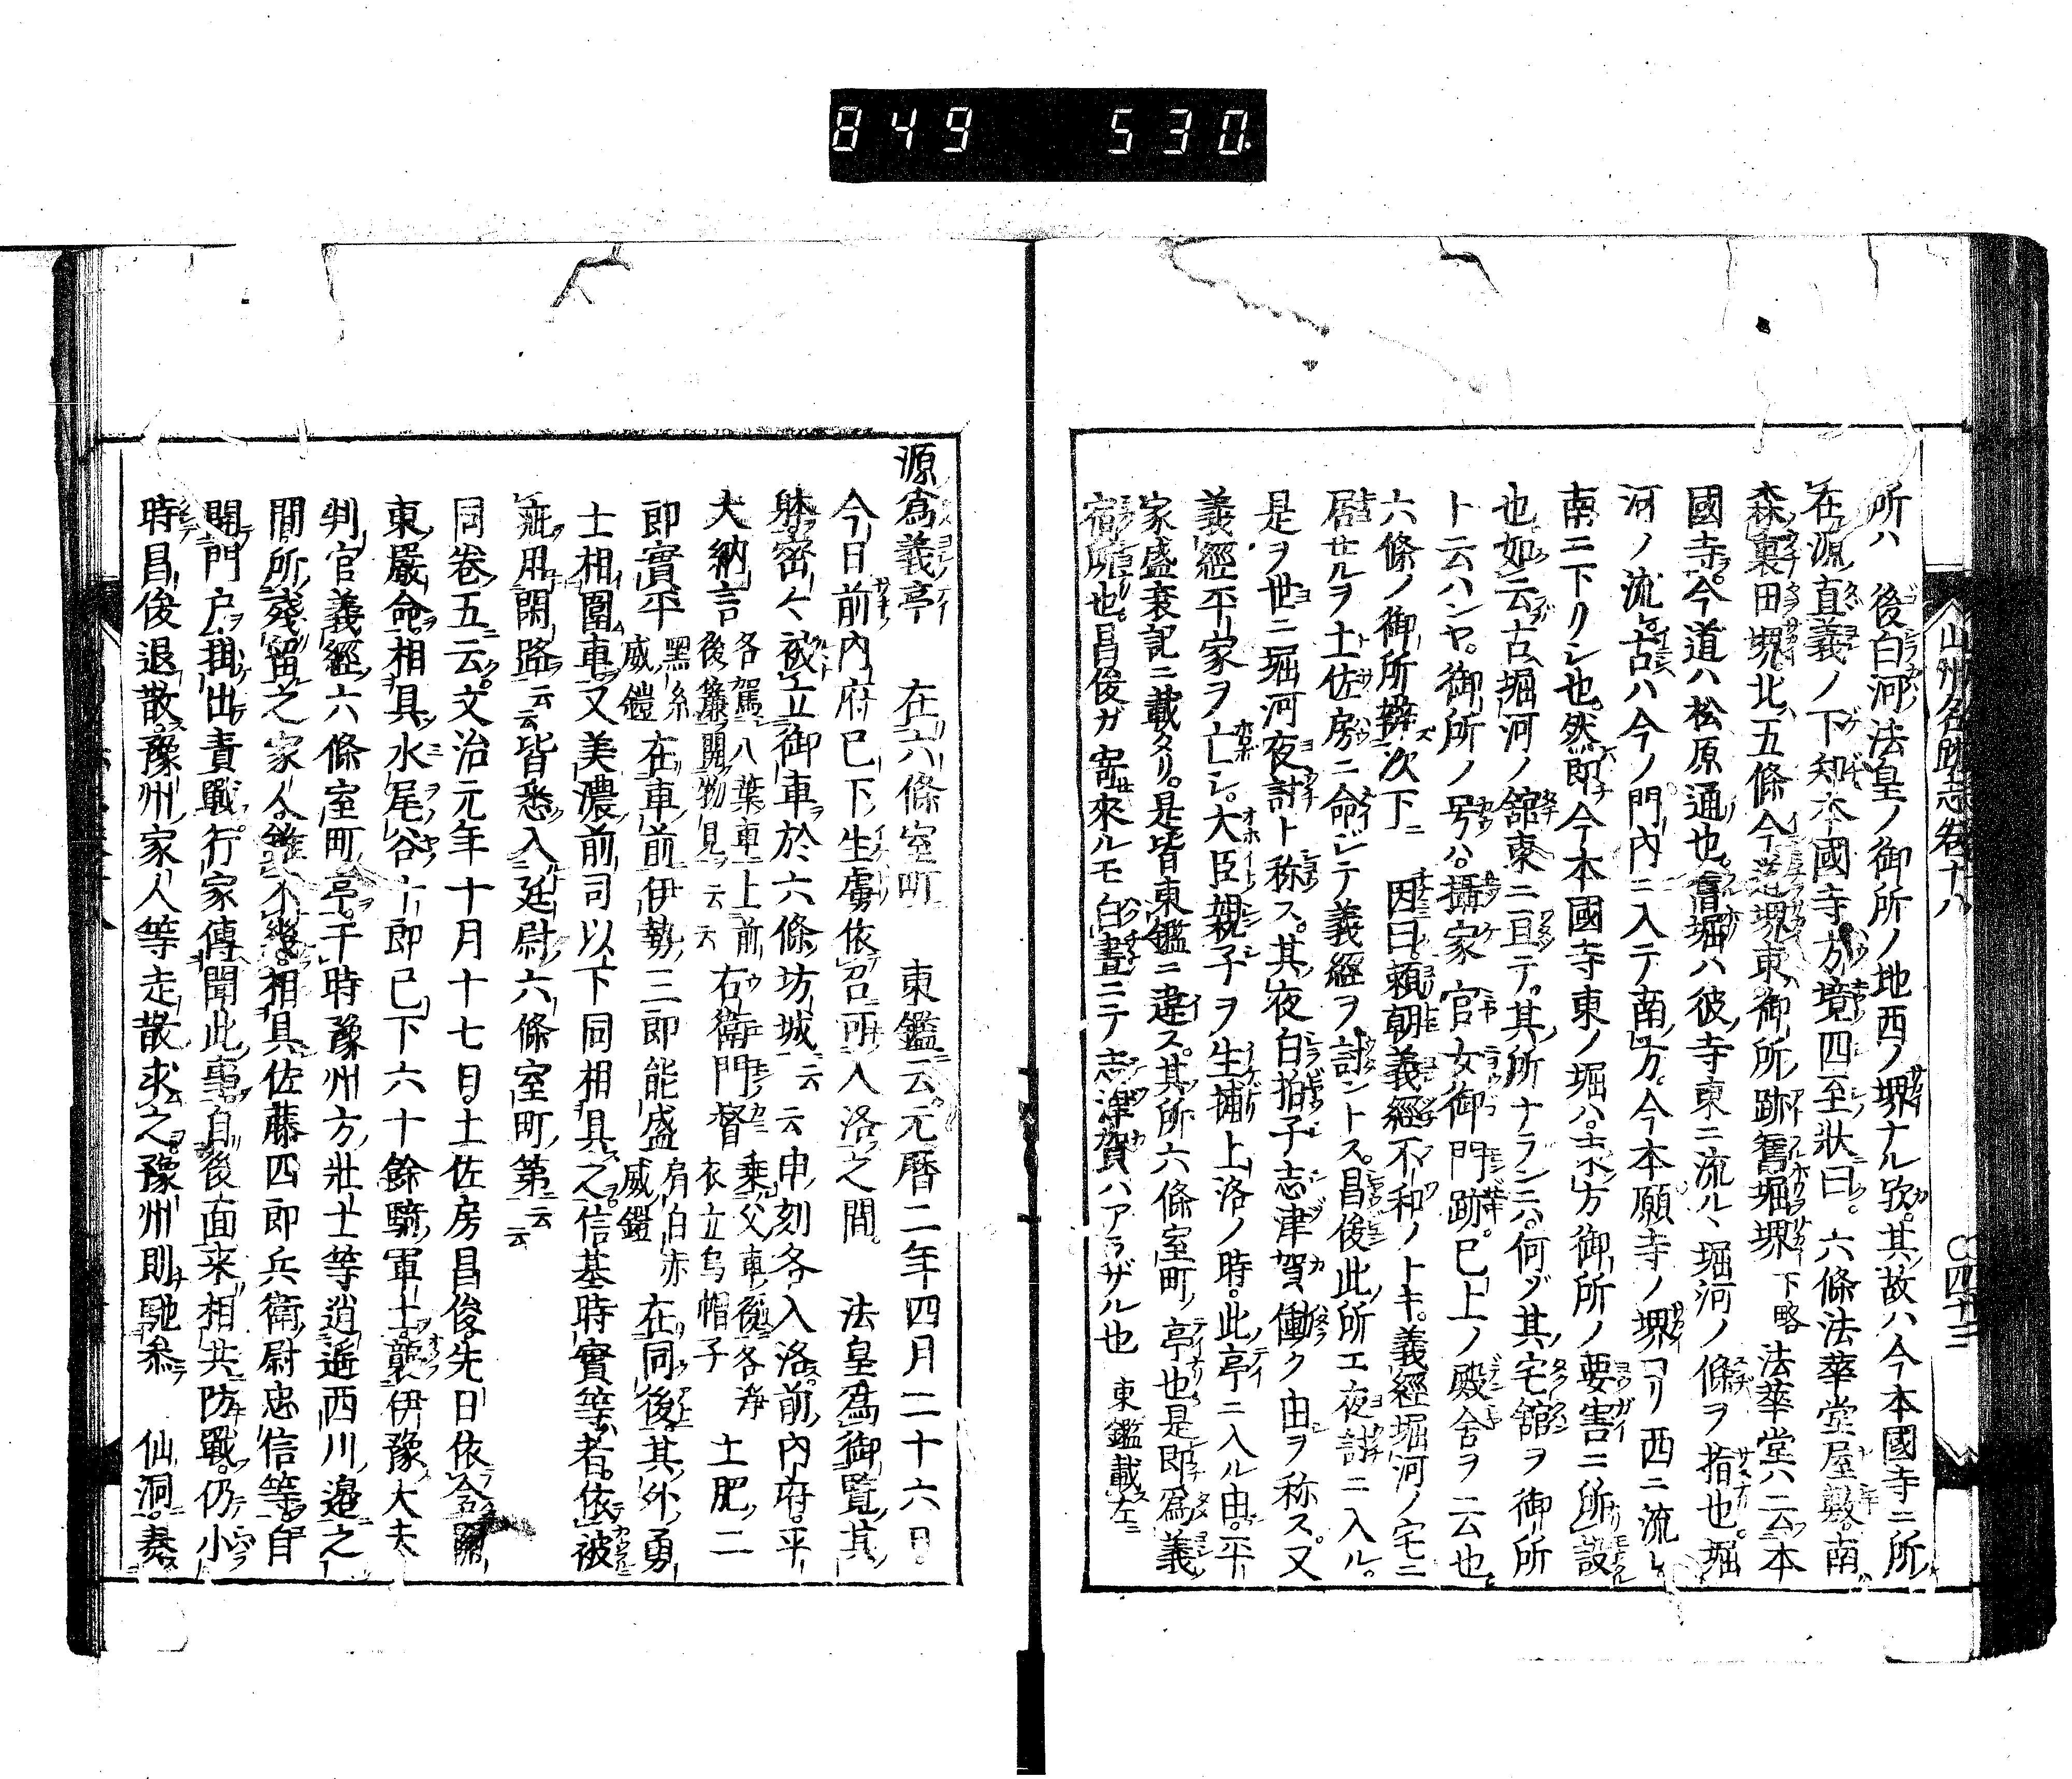 849 530
山州名跡志卷十八 〇四十三
所ハ 後白河法皇ノ御所ノ地西ノ堺ナル歟。其故ハ今本國寺ニ所
在源直義ノ下知本國寺方境四至狀曰。六條法華堂屋敷。南ハ
森東田堺。北ハ五條今道堺。東ハ御所跡舊堀堺 下略 法華堂ハ云本
國寺。今道ハ松原通也。舊堀ハ彼寺東ニ流ルヽ堀河ノ條ヲ指也。堀
河ノ流レ。古ハ今ノ門內ニ入テ南方。今本願寺ノ堺ヨリ西ニ流レ
南ニ下リシ也。然即今本國寺東ノ堀ハ。未方御所ノ要害ニ所設
也。如云古堀河ノ舘東ニ亘テ。其所ナランニハ。何ゾ其宅舘ヲ御所
ト云ハンヤ。御所ノ号ハ。攝家官女御門跡。已上ノ殿舍ヲ云也
六條ノ御所辨次下ニ 因曰。賴朝義經不和ノトキ。義經堀河ノ宅ニ
居サルヲ土佐房ニ命ジテ義經ヲ討ントス。昌俊此所エ夜討ニ入ル。
是ヲ世ニ堀河夜討ト称ス。其夜白拍子志津賀働ク由ヲ称ス。又
義經平家ヲ亡シ。大臣親子ヲ生捕上洛ノ時。此亭ニ入ル由。平
家盛衰記ニ載タリ。是皆東鑑ニ違ス。其所六條室町ノ亭也。是即爲義
宿所也。昌俊ガ寄來ルモ白晝ニテ志津賀ハアラザル也 東鑑載左ニ
源爲義亭 在六條室町 東鑑云元曆二年四月二十六日。
今日前內府已下生虜依召可入洛之間。 法皇爲御覽其
躰密々被立御車於六條坊城云云申刻各入洛。前內府。平
大納言 各駕八葉車上前後簾開物見云云 右衛門督 乘父車後各淨衣立烏帽子 土肥二
郎實平 黑糸威鎧 在車前伊勢三郎能盛 肩白赤威鎧 在同後。其外勇
士相圍車又美濃前司以下同相具之。信基時實等者。依被
疵用閑路云云皆悉入廷尉六條室町第云云
同卷五云。文治元年十月十七日。土佐房昌俊。先日依含關
東嚴命。相具水尾谷十郎已下六十餘騎軍士。襲伊豫大夫
判官義經六條室町亭。于時豫州方壯士等逍遙西川邊之
間。所殘留之家人雖不幾。相具佐藤四郎兵衛尉忠信等。自
開門戶。掛出責戰。行家傳聞此事。自後面來相共防戰。仍小
時昌俊退散。豫州家人等走散求之。豫州則馳參 仙洞。奏